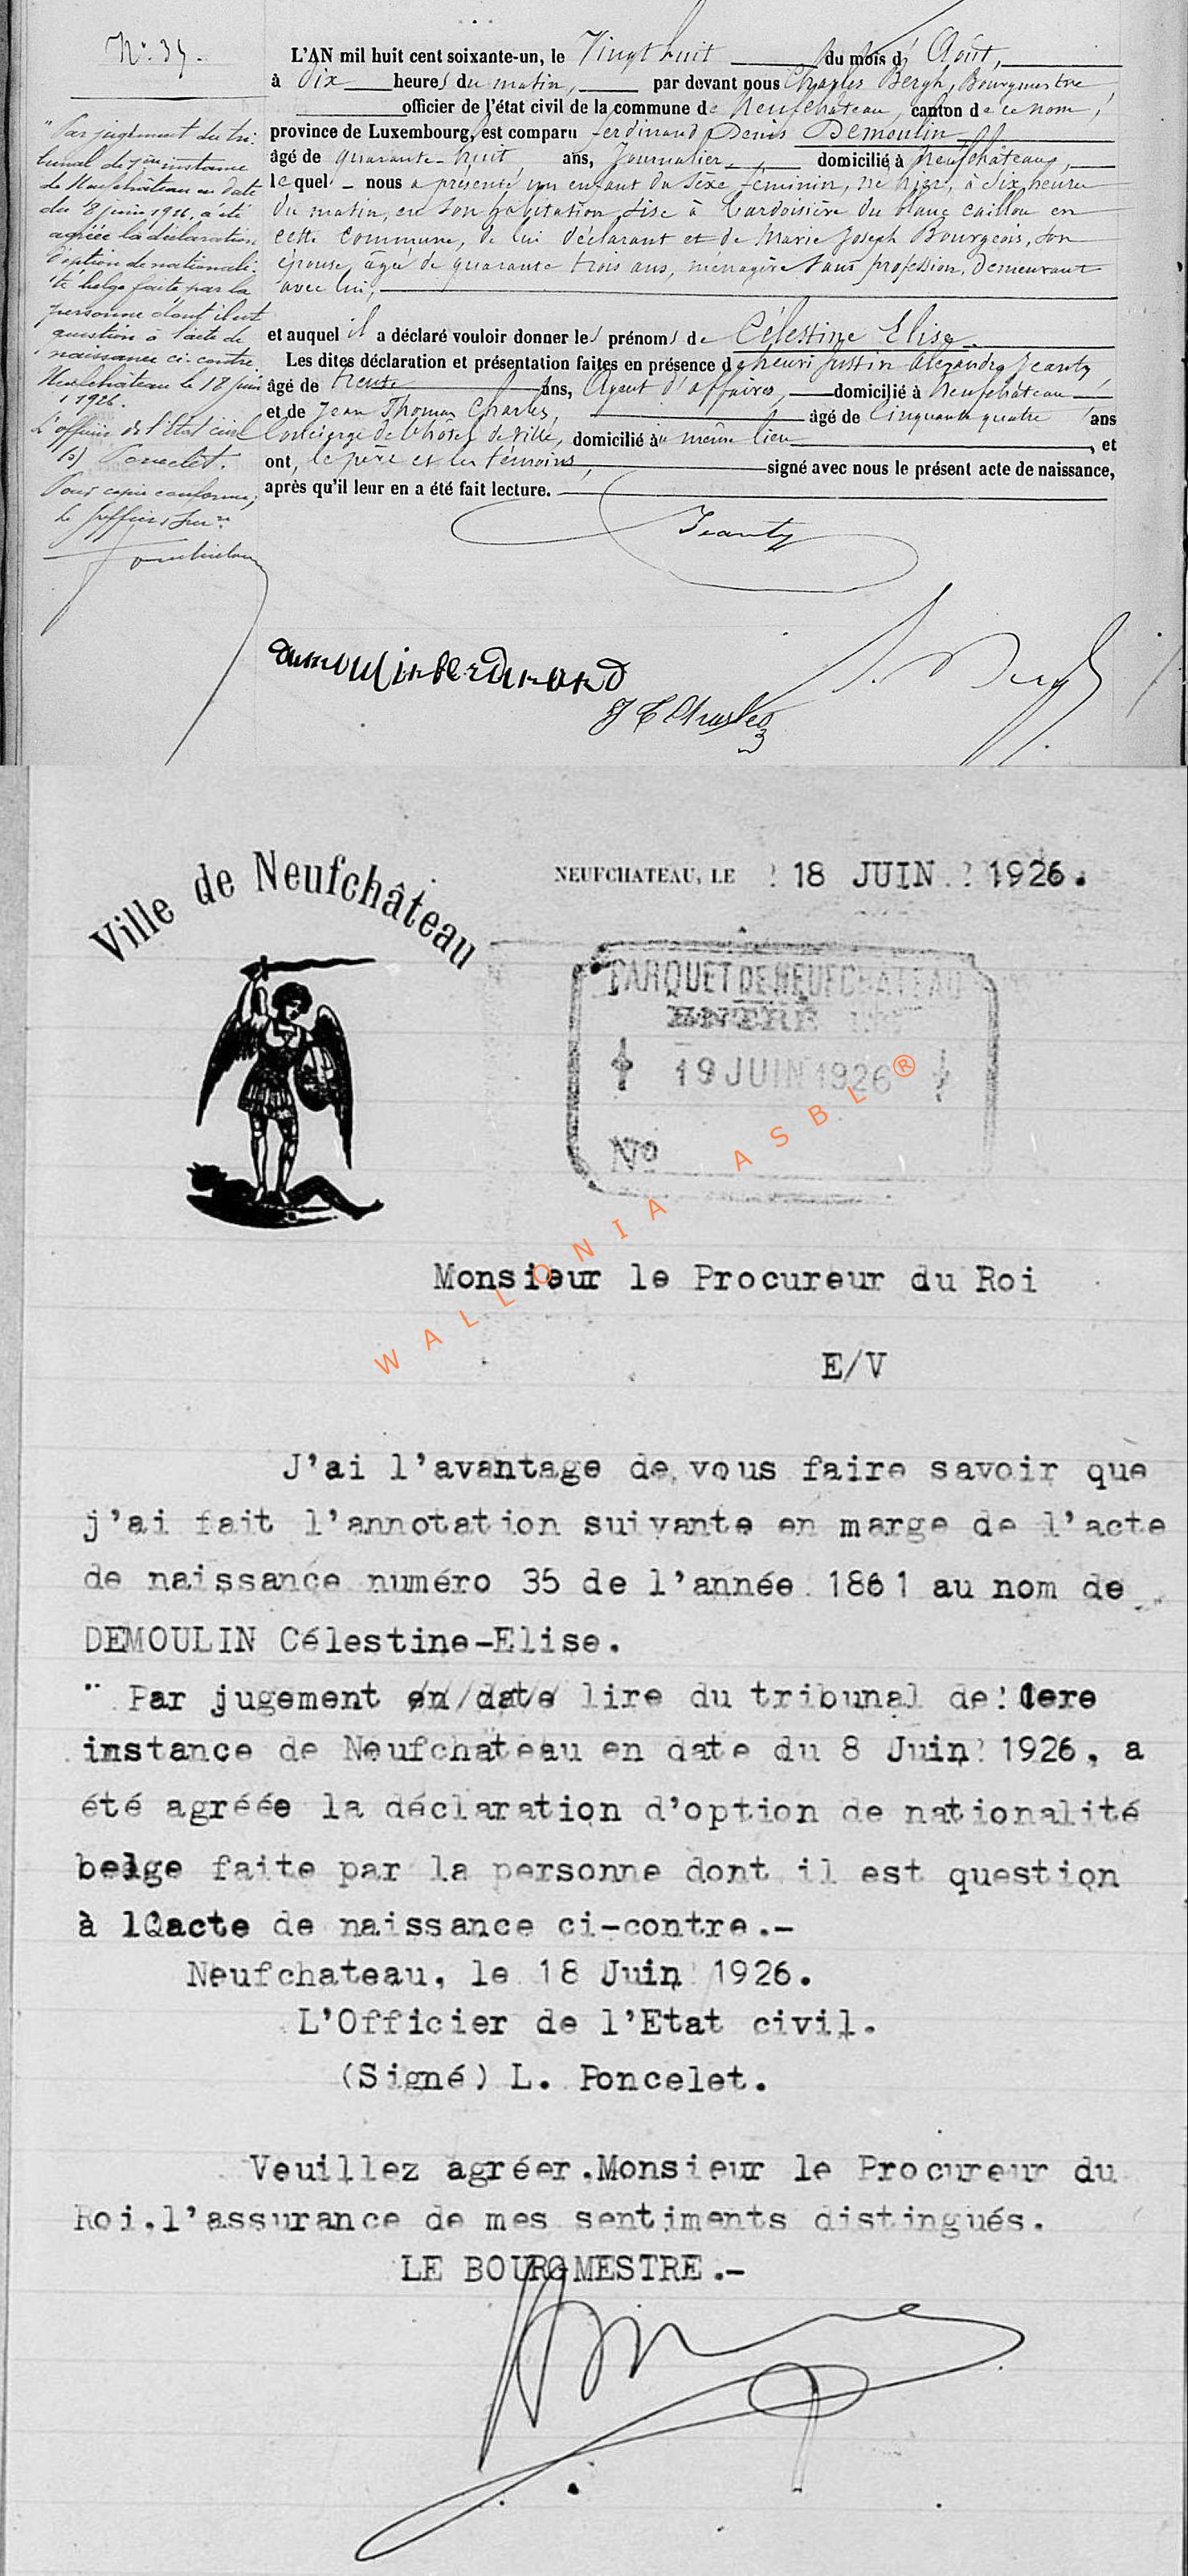 N° 35.
L'AN mil huit cent soixante-un, le Vingt huit du mois d' Août,
à dix heures du matin, par devant nous Charles Bergh, Bourgmestre
officier de l'état civil de la commune de Neufchâteau, canton de ce nom,
province de Luxembourg, est comparu ferdinand Denis Demoulin
âgé de quarante-huit ans, Journalier, domicilié à Neufchâteau,
lequel nous a présenté un enfant du sèxe féminin, né hier, à dix heures
du matin, en son habitation, sise à l'ardoisière du blanc caillou en
cette commune, de lui déclarant et de Marie Joseph Bourgeois, son
épouse, âgée de quarante trois ans, ménagère sans profession, demeurant
avec lui,
et auquel il a déclaré vouloir donner les prénoms de Célestine Elise.
Les dites déclaration et présentation faites en présence de henri Justin Alexandre Jeanty
âgé de trente ans, Agent d'affaires, domicilié à Neufchâteau
et de Jean Thomas Charles, âgé de Cinquante quatre ans
Concierge de l'hôtel de ville, domicilié au même lieu, et
ont, le père et les témoins, signé avec nous le présent acte de naissance,
après qu'il leur en a été fait lecture.
"Par jugement du tri-
bunal de 1ère instance
de Neufchâteau en date
du 8 juin 1926, a été
agréée la déclaration
d'option de nationali-
té belge faite par la
personne dont il est
question à l'acte de
naissance ci-contre
Neufchâteau le 18 juin
1926.
L'officier de l'Etat civil
(s) Poncelet.
Pour copie conforme,
Le greffier
Jeanty
demoulin ferdinand
J T Charles
Bergh
Ville de Neufchâteau
NEUFCHATEAU, LE 18 JUIN 1926.
PARQUET DE NEUFCHATEAU
ENTRÉ LE
19 JUIN 1926
N°
WALLONIA ASBL ®
Monsieur le Procureur du Roi
E/V
J'ai l'avantage de vous faire savoir que
j'ai fait l'annotation suivante en marge de l'acte
de naissance numéro 35 de l'année 1861 au nom de
DEMOULIN Célestine-Elise.
" Par jugement en/date lire du tribunal de 1ere
instance de Neufchateau en date du 8 Juin 1926, a
été agréée la déclaration d'option de nationalité
belge faite par la personne dont il est question
à lQacte de naissance ci-contre.-
Neufchateau, le 18 Juin 1926.
L'Officier de l'Etat civil.
(Signé) L. Poncelet.
Veuillez agréer.Monsieur le Procureur du
Roi.l'assurance de mes sentiments distingués.
LE BOURGMESTRE.-